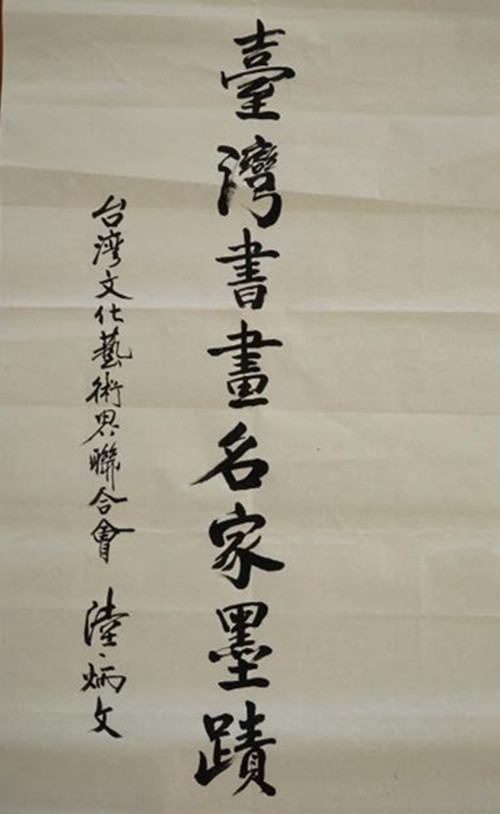 臺灣書畫名家墨蹟
台灣文化藝術界聯合會 陸炳文